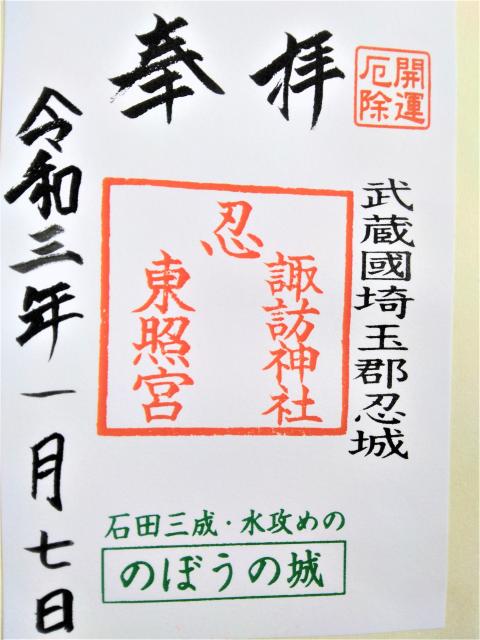 奉拝
開運
厄除
武蔵國埼玉郡忍城
忍
諏訪神社
東照宮
石田三成・水攻めの
のぼうの城
令和三年一月七日